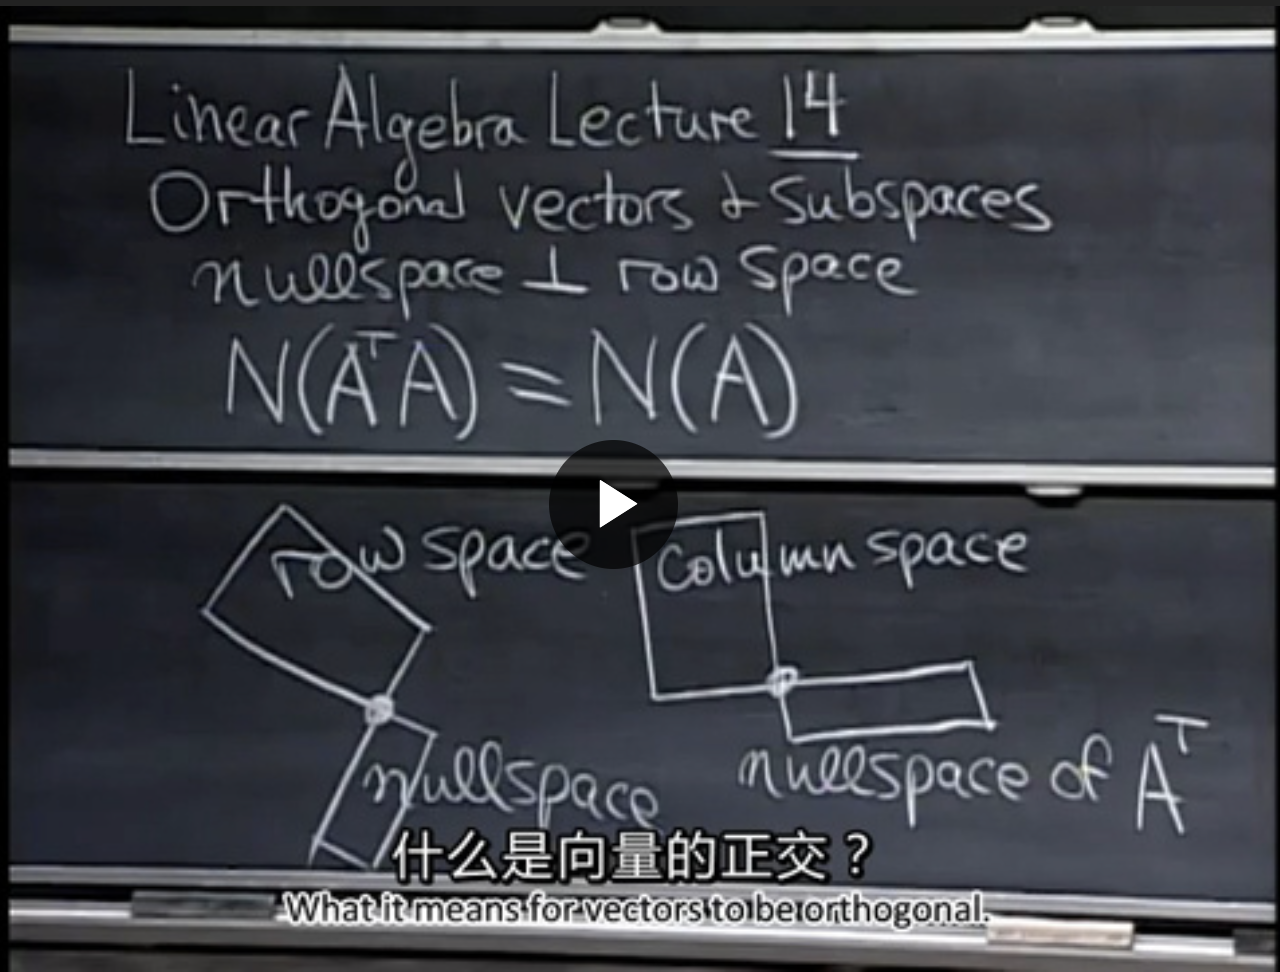 Linear Algebra Lecture 14
Orthogonal vectors & Subspaces
nullspace ⊥ row space
N(AᵀA) = N(A)
row space
column space
nullspace
nullspace of Aᵀ
什么是向量的正交？
What it means for vectors to be orthogonal.